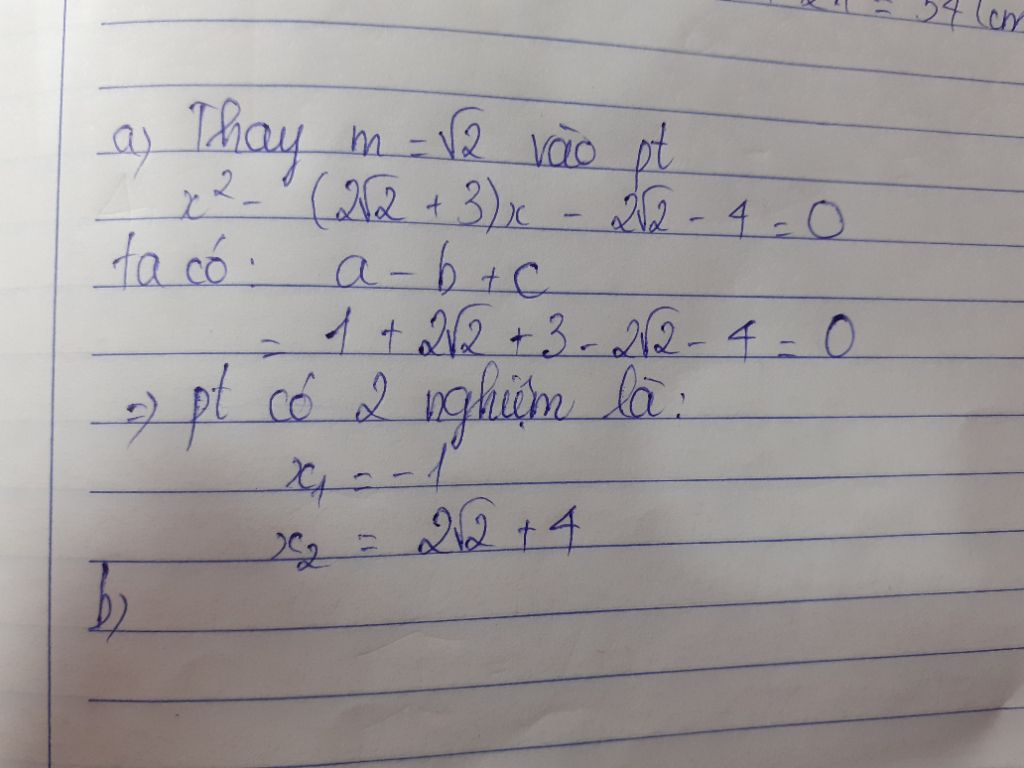 = 34 (cm
a) Thay m = √2 vào pt
x² - (2√2 + 3)x - 2√2 - 4 = 0
ta có: a - b + c
= 1 + 2√2 + 3 - 2√2 - 4 = 0
=> pt có 2 nghiệm là:
x₁ = -1
x₂ = 2√2 + 4
b)